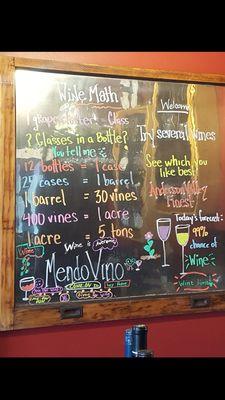 Wine Math
1 grape cluster = 1 Glass
? Glasses in a Bottle?
You tell me
12 bottles = 1 case
25 cases = 1 barrel
1 barrel = 30 vines
400 vines = 1 acre
1 acre = 5 tons
Wine is Awesome
MendoVino
Welcome
Try several Wines
See which you
like best!
Anderson Valley
Finest
Today's forecast:
99%
chance of
Wine